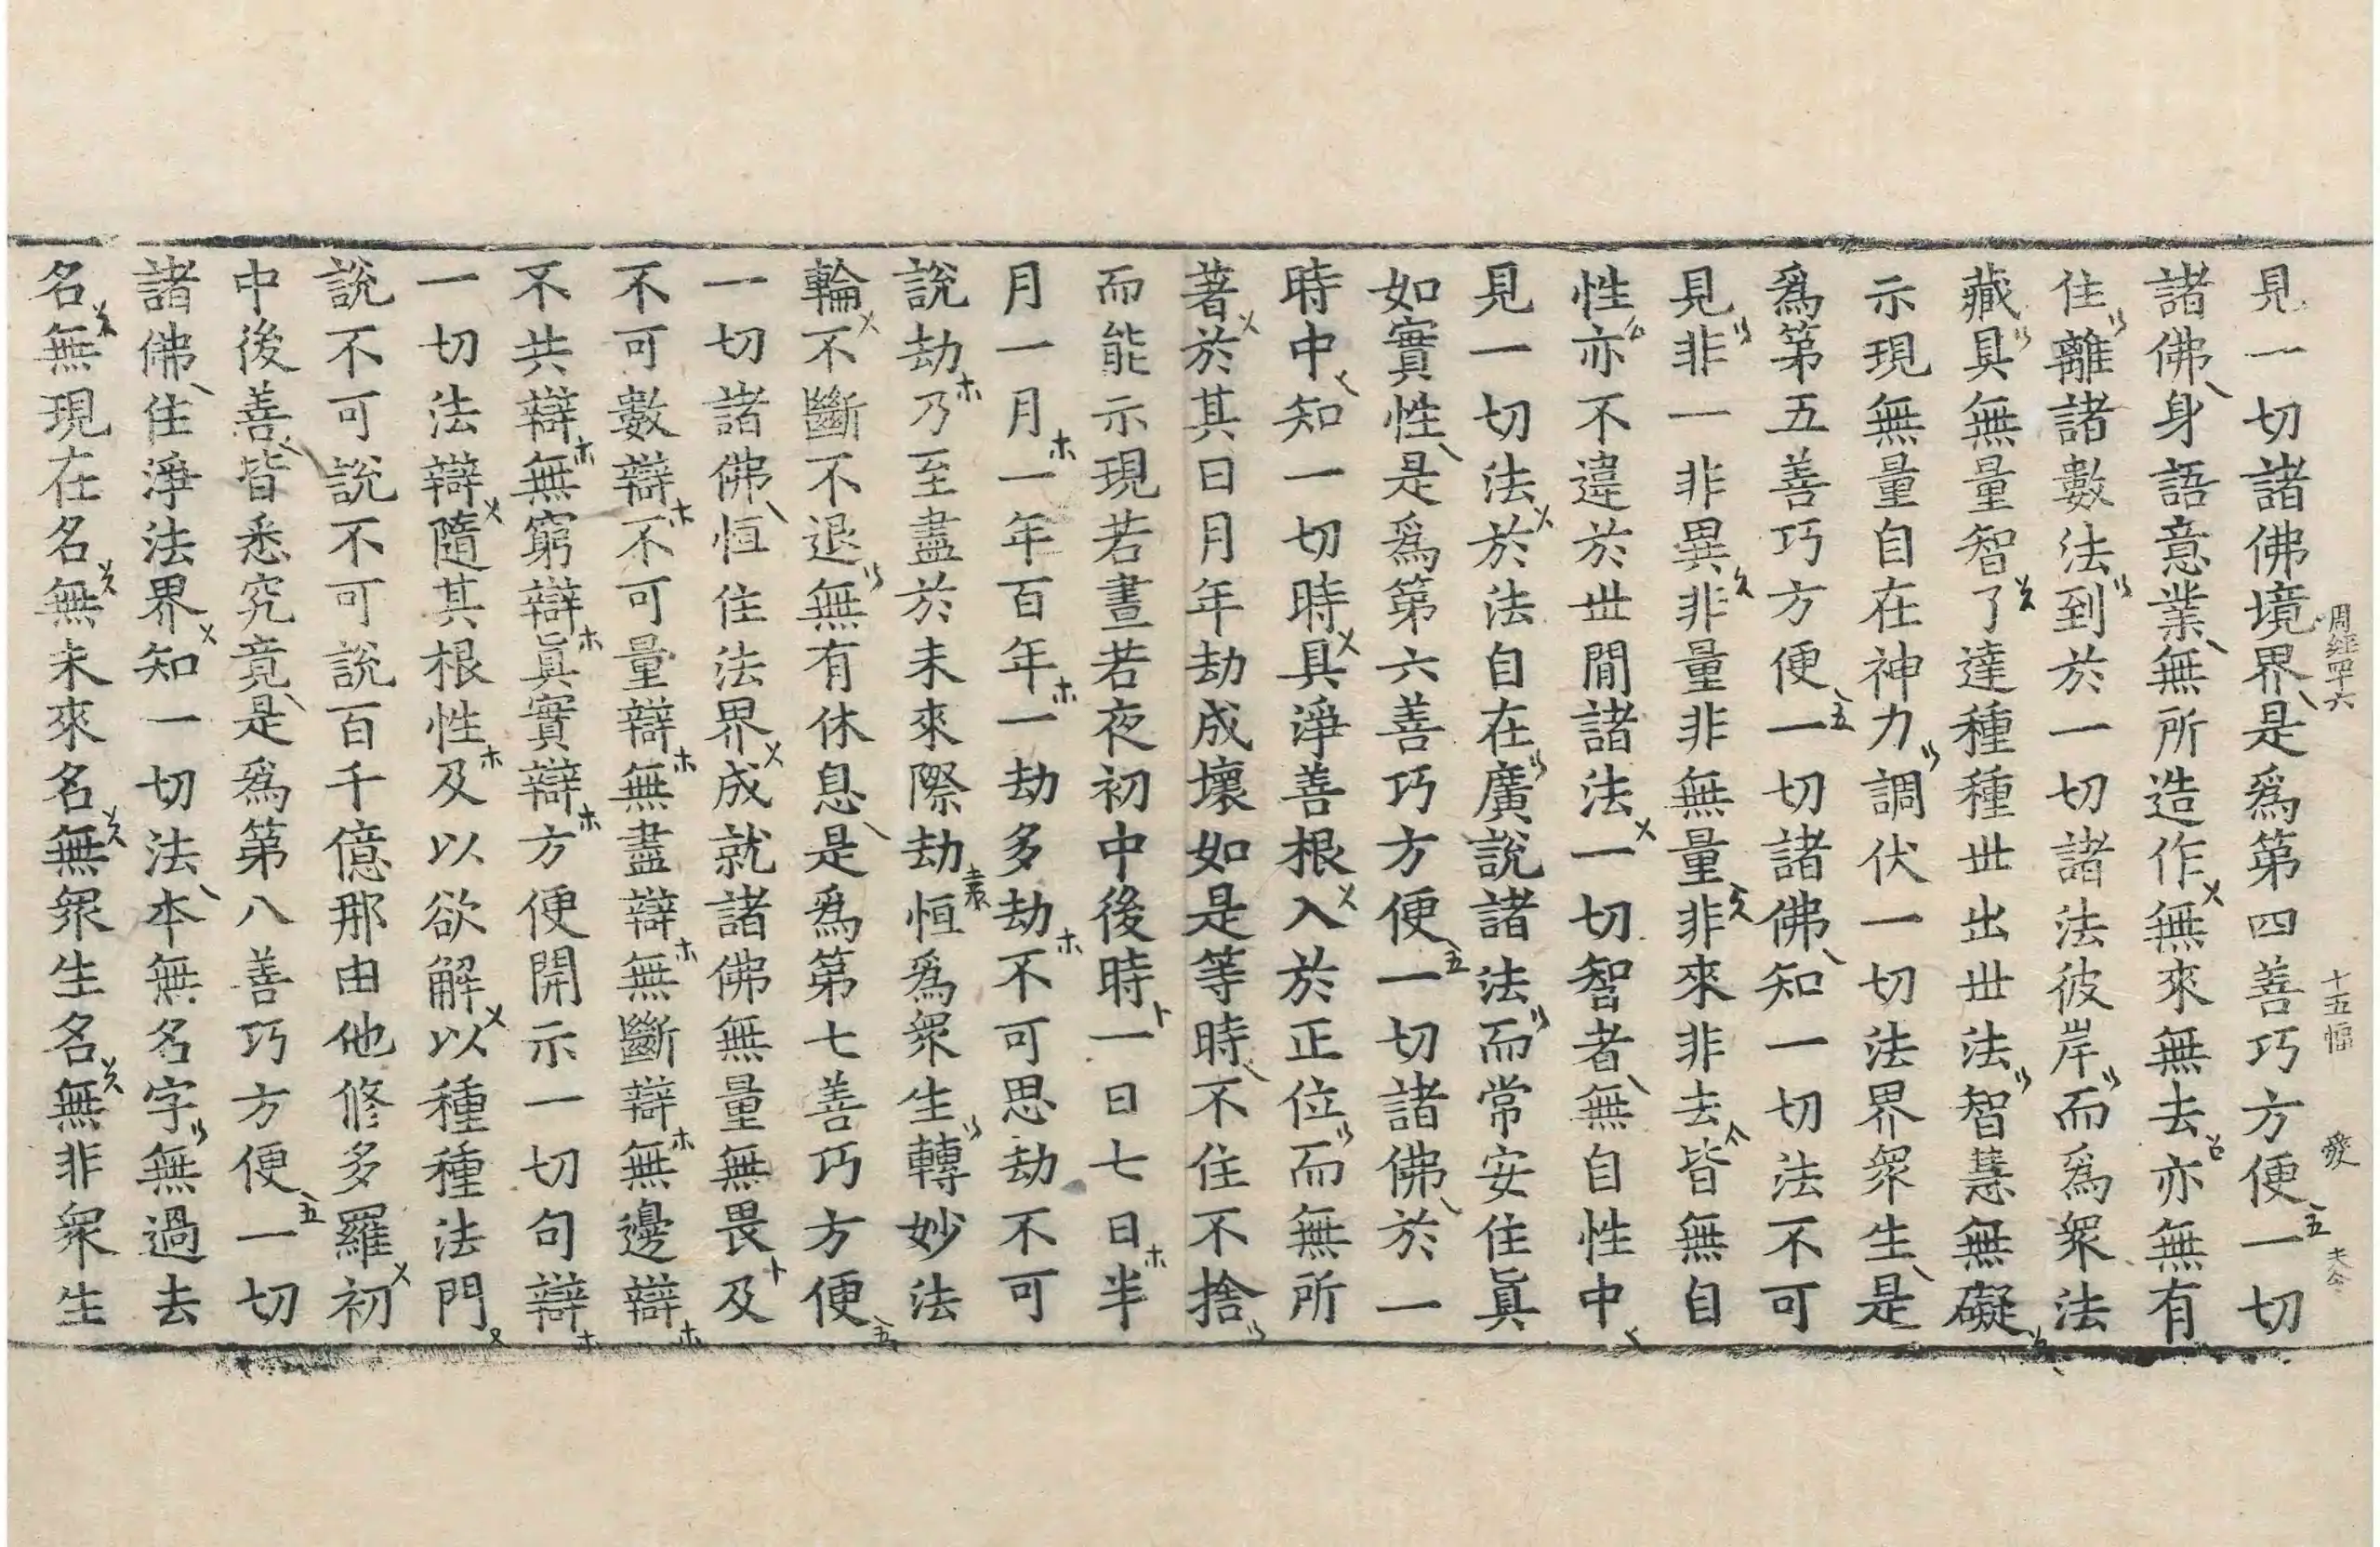 周經四十六　十五幅　發　夫今
見一切諸佛境界是爲第四善巧方便一切
諸佛身語意業無所造作無來無去亦無有
住離諸數法到於一切諸法彼岸而爲衆法
藏具無量智了達種種世出世法智慧無礙
示現無量自在神力調伏一切法界衆生是
爲第五善巧方便一切諸佛知一切法不可
見非一非異非量非無量非來非去皆無自
性亦不違於世間諸法一切智者無自性中
見一切法於法自在廣說諸法而常安住眞
如實性是爲第六善巧方便一切諸佛於一
時中知一切時具淨善根入於正位而無所
著於其日月年劫成壞如是等時不住不捨
而能示現若晝若夜初中後時一日七日半
月一月一年百年一劫多劫不可思劫不可
說劫乃至盡於未來際劫恒爲衆生轉妙法
輪不斷不退無有休息是爲第七善巧方便
一切諸佛恒住法界成就諸佛無量無畏及
不可數辯不可量辯無盡辯無斷辯無邊辯
不共辯無窮辯眞實辯方便開示一切句辯
一切法辯隨其根性及以欲解以種種法門
說不可說不可說百千億那由他修多羅初
中後善皆悉究竟是爲第八善巧方便一切
諸佛住淨法界知一切法本無名字無過去
名無現在名無未來名無衆生名無非衆生